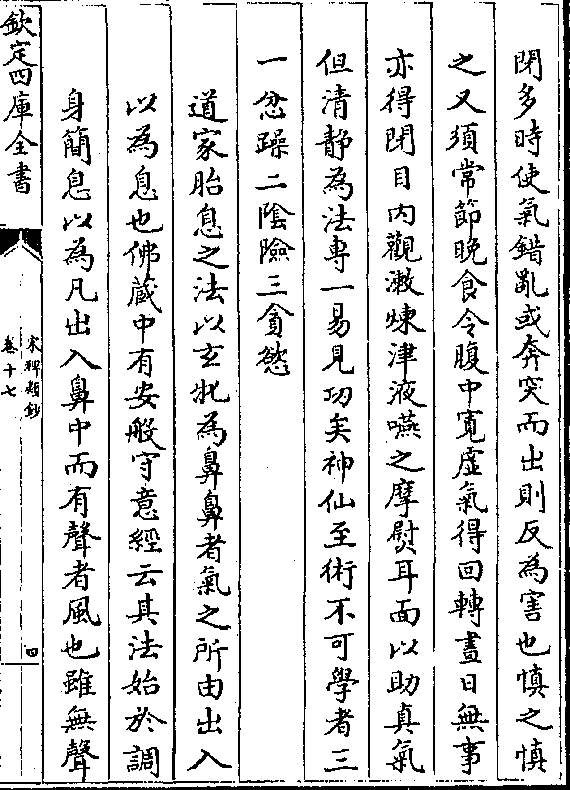 閉多時使氣錯亂或奔突而出則反為害也慎之慎
之又須常節晚食令腹中寛虛氣得回轉晝日無事
亦得閉目内觀漱煉津液嚥之摩熨耳面以助真氣
但清靜為法專一易見功矣神仙至術不可學者三
一忿躁二陰險三貪慾
道家胎息之法以玄牝為鼻鼻者氣之所由出入
以為息也佛藏中有安般守意經云其法始於調
身簡息以為凡出入鼻中而有聲者風也雖無聲
欽定四庫全書
宋稗類鈔
卷十七
四